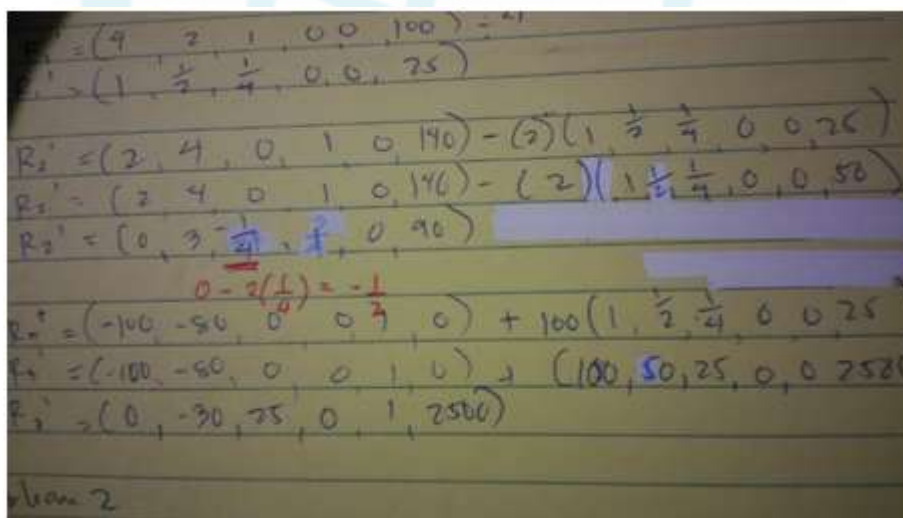 R₁' = (4, 2, 1, 0 0, 100) ÷ 4
R₁' = (1, 1/2, 1/4, 0, 0, 25)
R₂' = (2, 4, 0, 1, 0, 140) - (2)(1, 1/2, 1/4, 0, 0, 25)
R₂' = (2, 4, 0, 1, 0, 140) - (2)(1, 1/2, 1/4, 0, 0, 50)
R₂' = (0, 3, -1/4, , 0, 90)
0 - 2(1/4) = -1/2
= (-100, -80, 0, 0, 1, 0) + 100(1, 1/2, 1/4, 0 0, 25
= (-100, -80, 0, 0, 1, 0) + (100, 50, 25, 0, 0 2500
= (0, -30, 25, 0, 1, 2500)
2